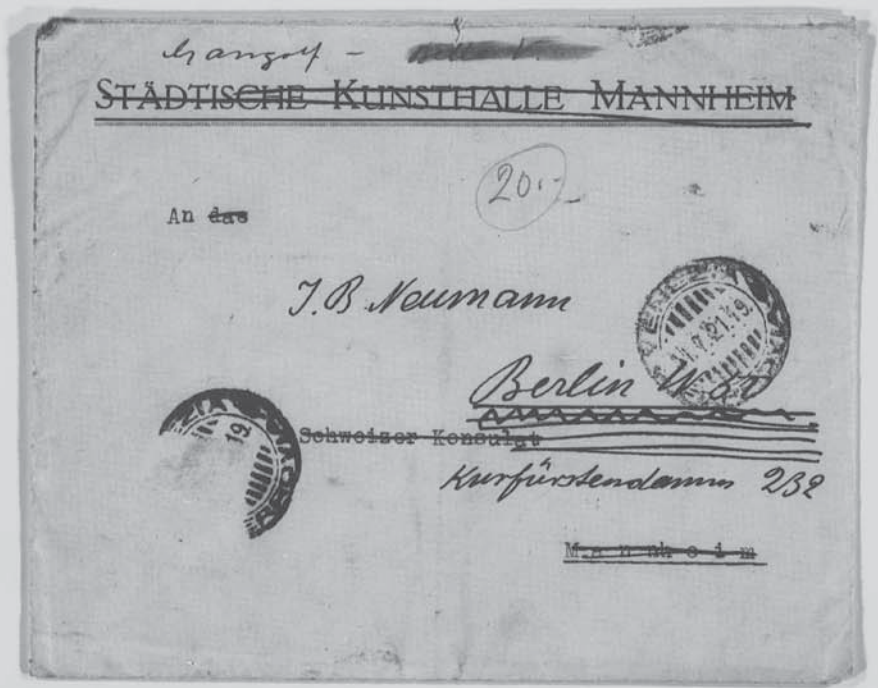 STÄDTISCHE KUNSTHALLE MANNHEIM
20.-
An das
J. B. Neumann
21.19
Berlin W 50
19
Schweizer Konsulat
Kurfürstendamm 232
Mannheim